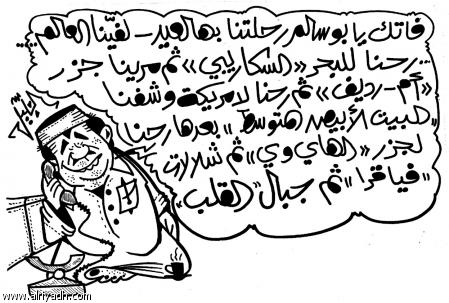 فاتك يا بوسالم رحلتنا بهالعيد - لفّينا العالم...
..رحنا للبحر «السكاريبي» ثم مرينا جزر
«أم - رديف» ثم رحنا لامريكة وشفنا
«البيت الأبيض المتوسط» بعدها رحنا
لجزر «الهاي وي» ثم شلالات
«فياقرا» ثم جبال «القلب»..
www.alriyadh.com